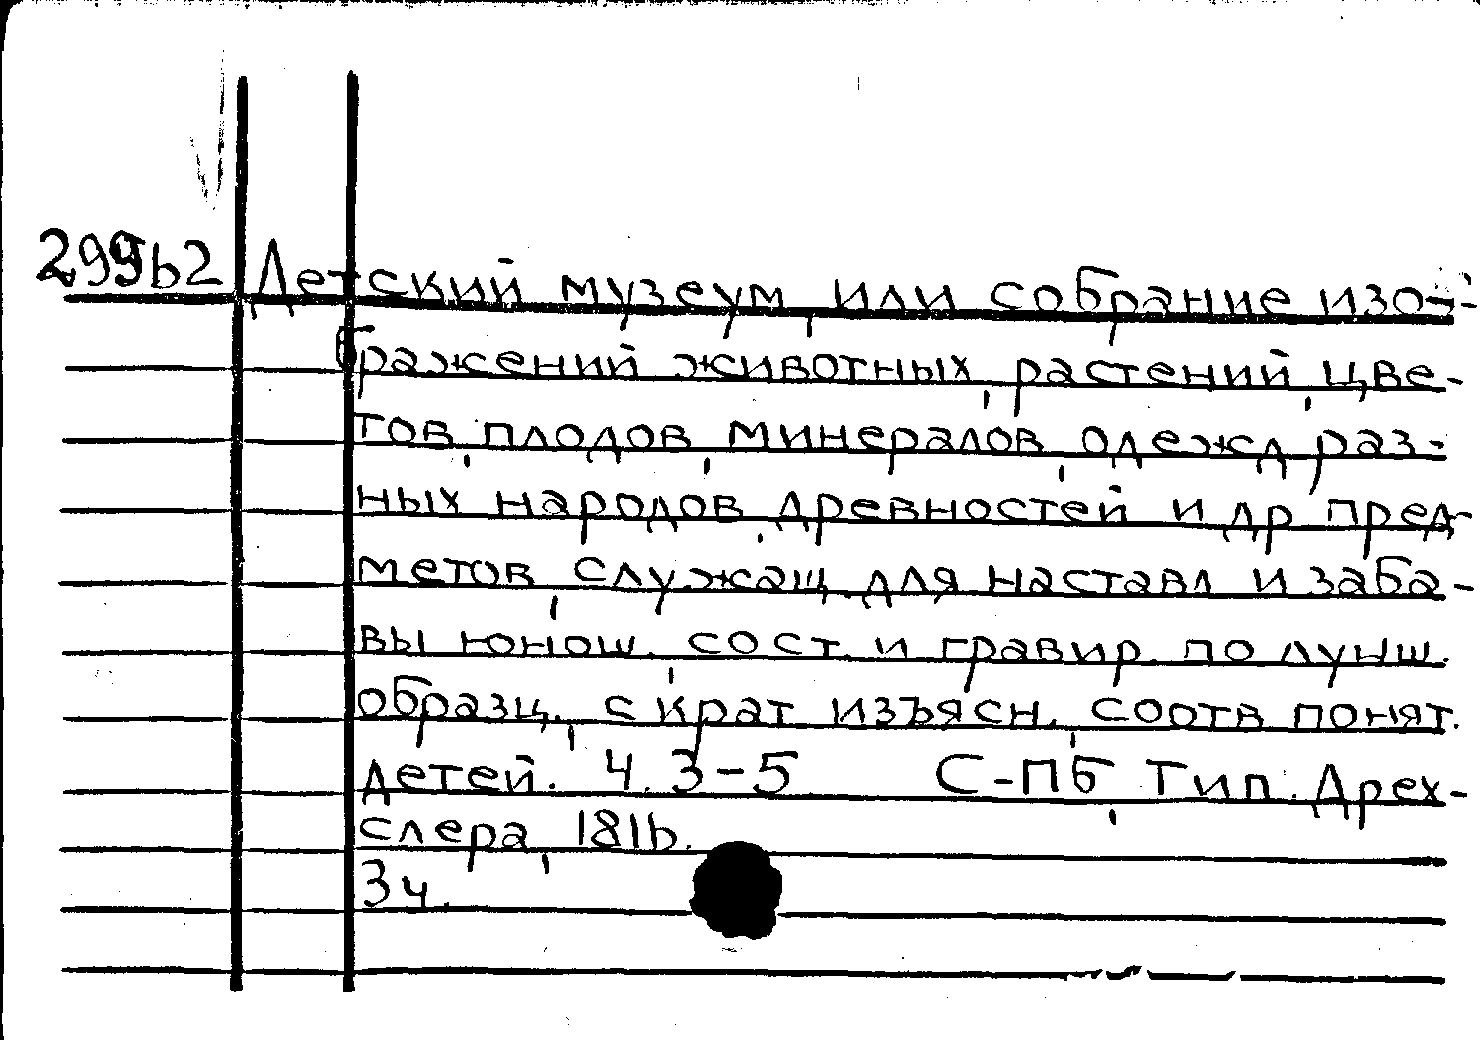 29962 Детский музеум, или собрание изо-
бражений животных, растений, цве-
тов, плодов, минералов, одежд раз-
ных народов, древностей и др пред-
метов, служащ. для наставл и заба-
вы юнош., сост. и гравир. по лучш.
образц., с крат изъясн., соотв понят.
детей. Ч. 3-5 С-Пб, Тип. Дрех-
слера, 1816.
3ч.